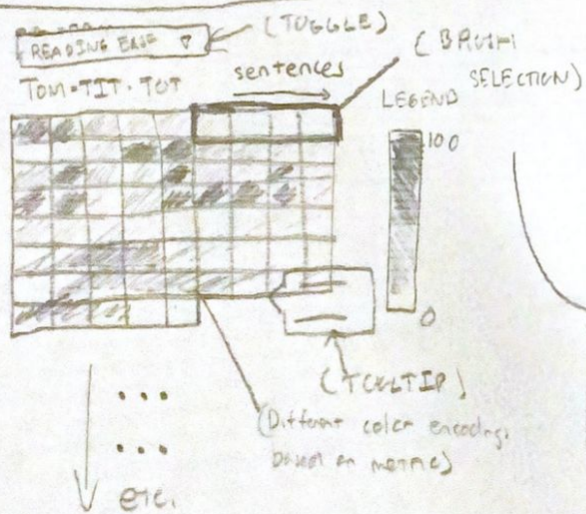 READING EASE ▽
(TOGGLE)
(BRUSH
SELECTION)
TOM-TIT-TOT
sentences
LEGEND
100
0
(TOOLTIP)
(Different color encodings
based on metric)
...
...
etc.